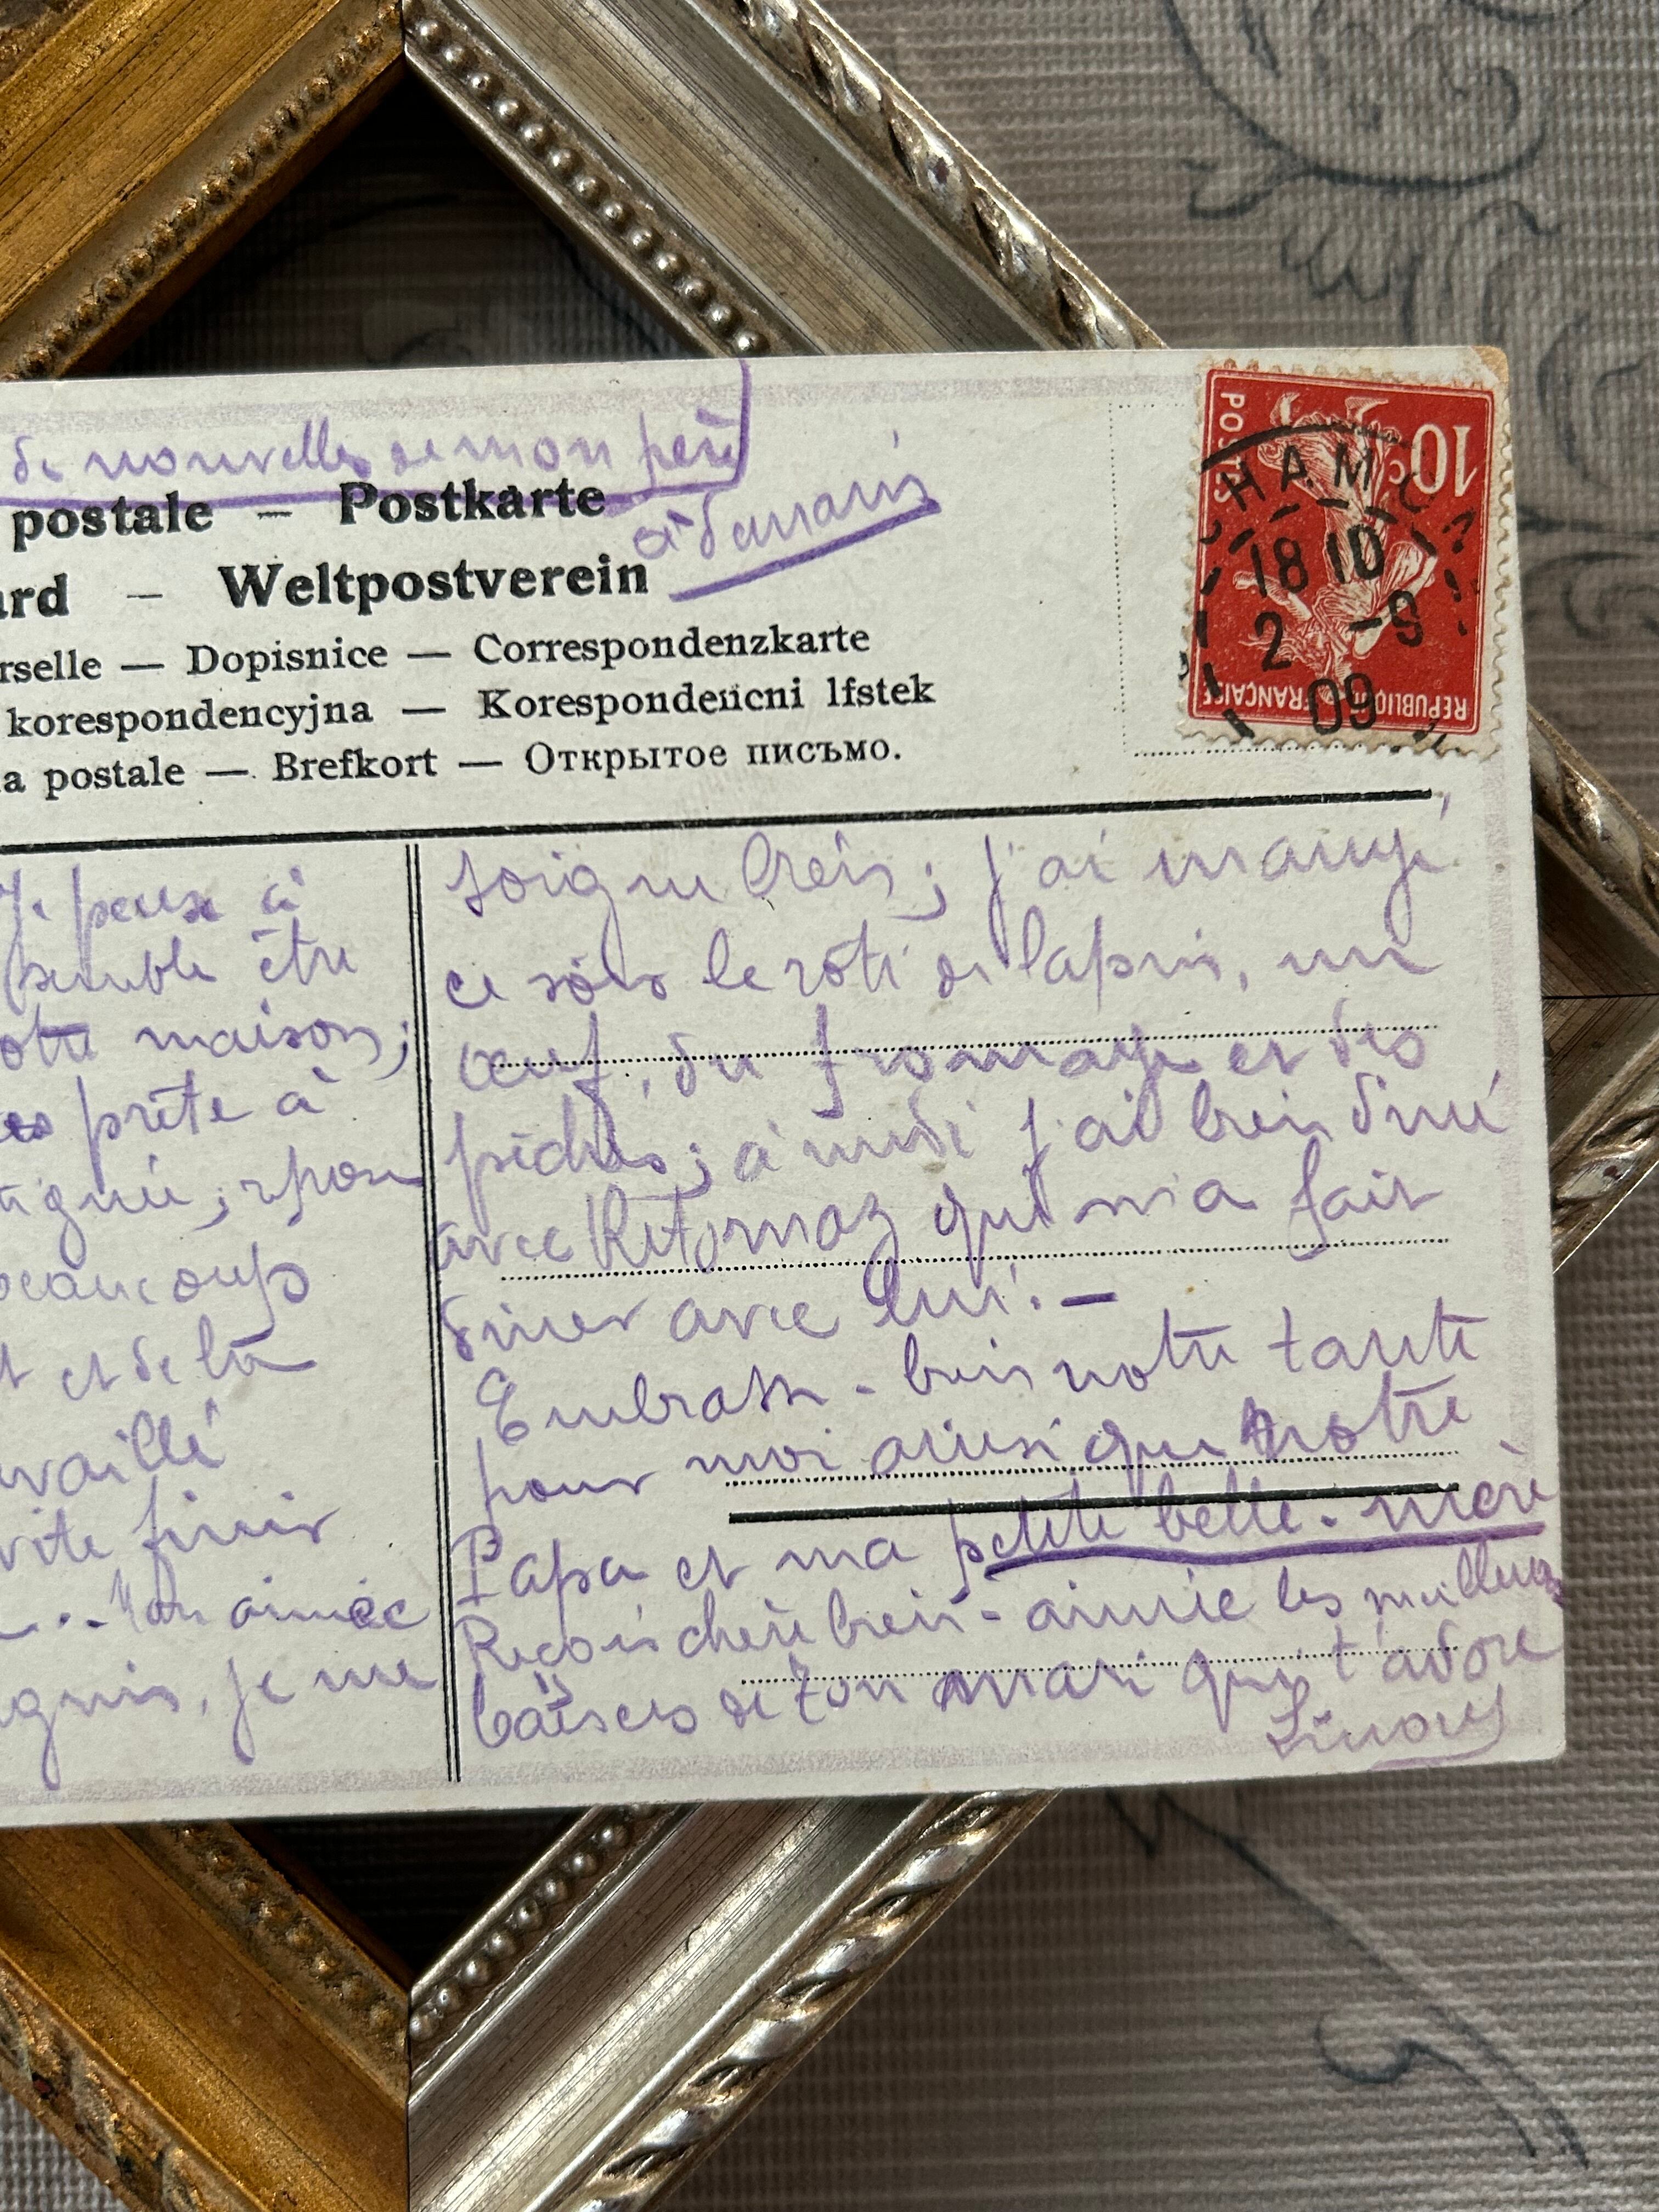 de nouvelles de mon père
à demain
postale — Postkarte
ard — Weltpostverein
rselle — Dopisnice — Correspondenzkarte
korespondencyjna — Korespondencni lfstek
a postale — Brefkort — Открытое писъмо.
10c
POSTES
REPUBLIQUE FRANÇAISE
HAM
18 10
2 -9
09
Je peux à
semble être
otre maison;
es prête à
beaucoup
t et de la
availlé
vite finir
aimée
, je me
soigne bien; j'ai mangé
ce soir le rôti de lapin, un
œuf, du fromage et des
pêches; à midi j'ai bien dîné
avec qui m'a fait
dîner avec lui. —
Embrasse-bien notre tante
pour moi ainsi que notre
Papa et ma petite belle-mère
Reçois chère bien-aimée les meilleurs
baisers de ton mari qui t'adore